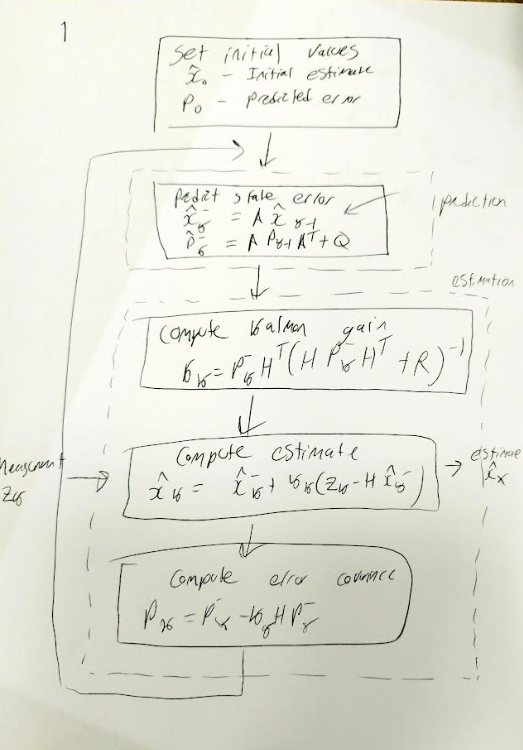 1
Set initial values
x̂₀ - Initial estimate
P₀ - predicted error
predict state error
x̂ₖ⁻ = A x̂ₖ₋₁
P̂ₖ⁻ = A Pₖ₋₁ Aᵀ + Q
prediction
estimation
Compute Kalman gain
Kₖ = Pₖ⁻ Hᵀ (H Pₖ⁻ Hᵀ + R)⁻¹
Compute estimate
x̂ₖ = x̂ₖ⁻ + Kₖ(zₖ - H x̂ₖ⁻)
zₖ
estimate
x̂ₖ
Compute error
Pₖ = Pₖ⁻ - Kₖ H Pₖ⁻